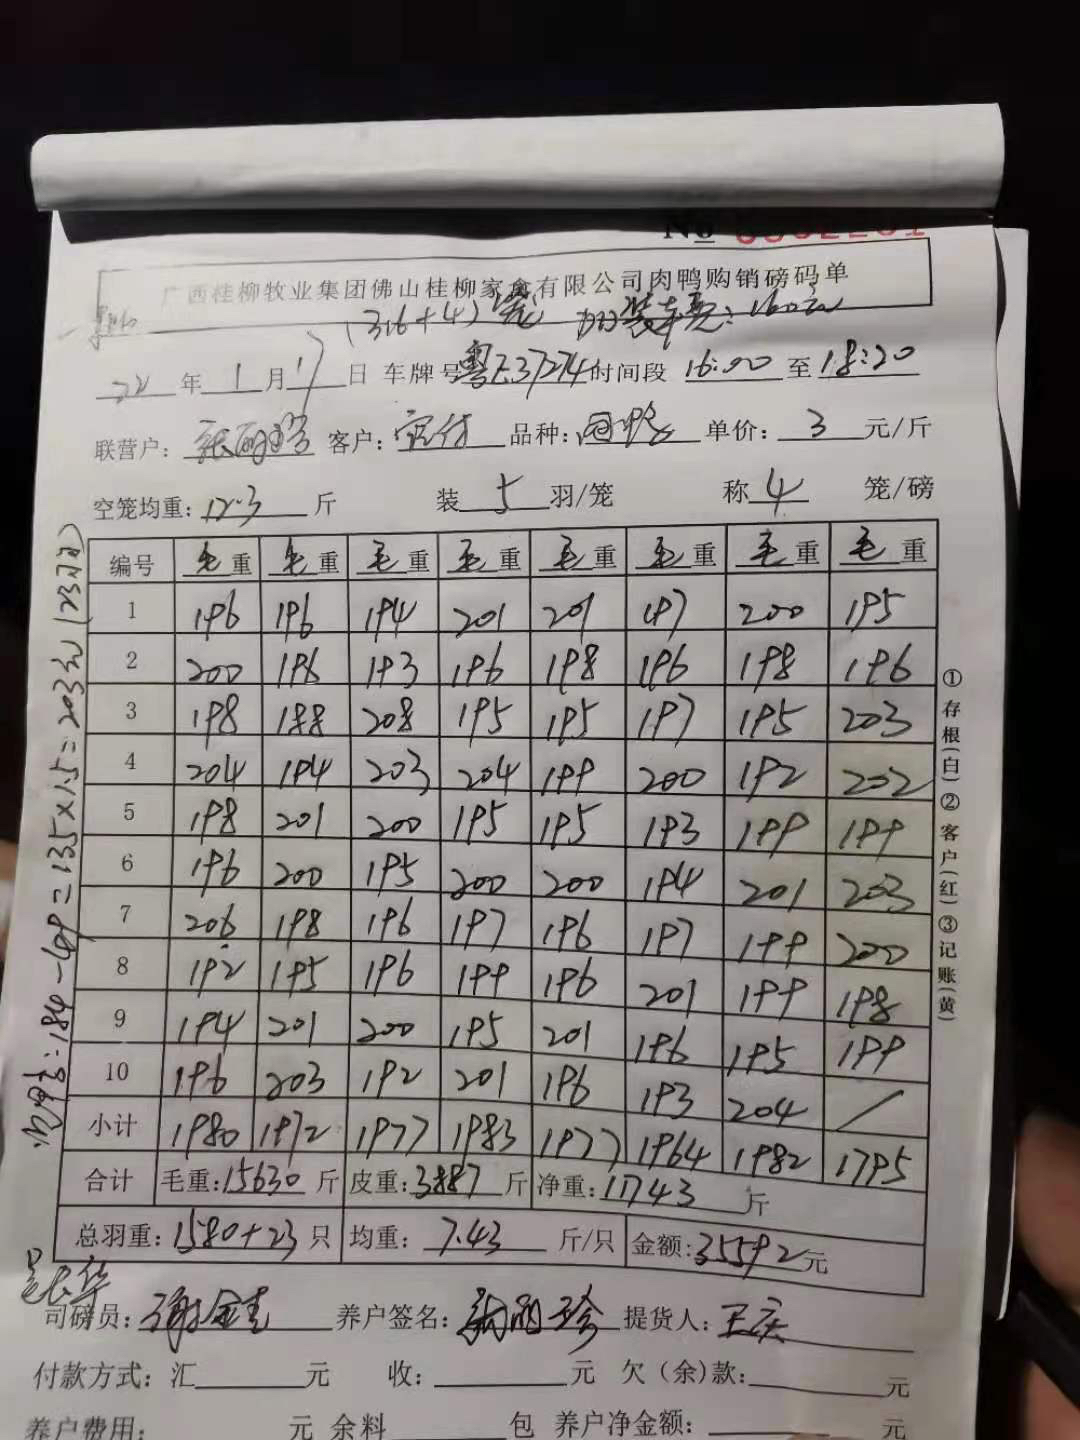 No
广西桂柳牧业集团佛山桂柳家禽有限公司肉鸭购销磅码单
(316+4)笼 加装车费:160元
22年1月17日 车牌号粤E37274时间段16:00至18:20
联营户: 客户: 品种: 单价:3元/斤
空笼均重:12.3斤 装5羽/笼 称4笼/磅
编号 毛重 毛重 毛重 毛重 毛重 毛重 毛重 毛重
1 196 196 194 201 201 197 200 195
2 200 196 193 196 198 196 198 196
3 198 188 208 195 195 197 195 203
4 204 194 203 204 199 200 192 202
5 198 201 200 195 195 193 199 199
6 196 200 195 200 200 194 201 203
7 206 198 196 197 196 197 199 200
8 192 195 196 199 196 201 199 198
9 194 201 200 195 201 196 195 199
10 196 203 192 201 196 193 204 /
小计 1980 1972 1977 1983 1977 1964 1982 1795
合计 毛重:15630斤 皮重:3887斤 净重:11743斤
总羽重:1580+23只 均重:7.43斤/只 金额:35592元
司磅员:谢金 养户签名: 提货人:王庆
付款方式:汇 元 收: 元 欠(余)款: 元
养户费用: 元 余料 包 养户净金额: 元
①存根(白)②客户(红)③记账(黄)
:184-49=135×1.5=203元(23只)